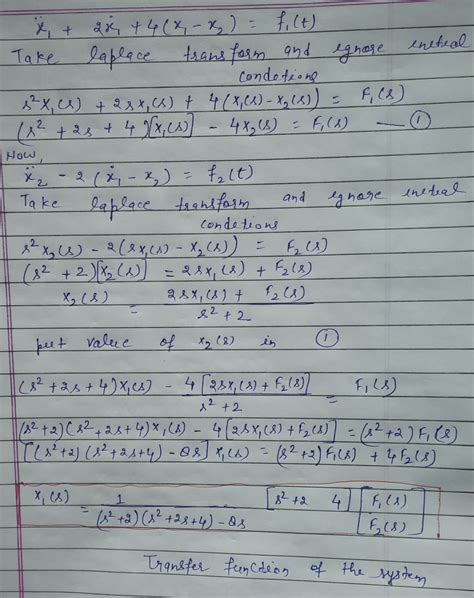 ẍ₁ + 2ẋ₁ + 4(x₁ - x₂) = f₁(t)
Take laplace transform and ignore initial
conditions
s²X₁(s) + 2sx₁(s) + 4(X₁(s) - X₂(s)) = F₁(s)
(s² + 2s + 4)[x₁(s)] - 4X₂(s) = F₁(s) — ①
Now,
ẍ₂ - 2(ẋ₁ - x₂) = f₂(t)
Take laplace transform and ignore initial
conditions
s²X₂(s) - 2(sX₁(s) - X₂(s)) = F₂(s)
(s² + 2)[X₂(s)] = 2sx₁(s) + F₂(s)
X₂(s) = 2sx₁(s) + F₂(s) / s² + 2
put value of x₂(s) in ①
(s² + 2s + 4)X₁(s) - 4[2sx₁(s) + F₂(s)] / s² + 2 = F₁(s)
(s²+2)(s²+2s+4)X₁(s) - 4[2sX₁(s) + F₂(s)] = (s²+2)F₁(s)
[(s²+2)(s²+2s+4) - 8s]X₁(s) = (s²+2)F₁(s) + 4F₂(s)
X₁(s) = 1 / (s²+2)(s²+2s+4) - 8s [s²+2 4] [F₁(s) F₂(s)]
Transfer function of the system